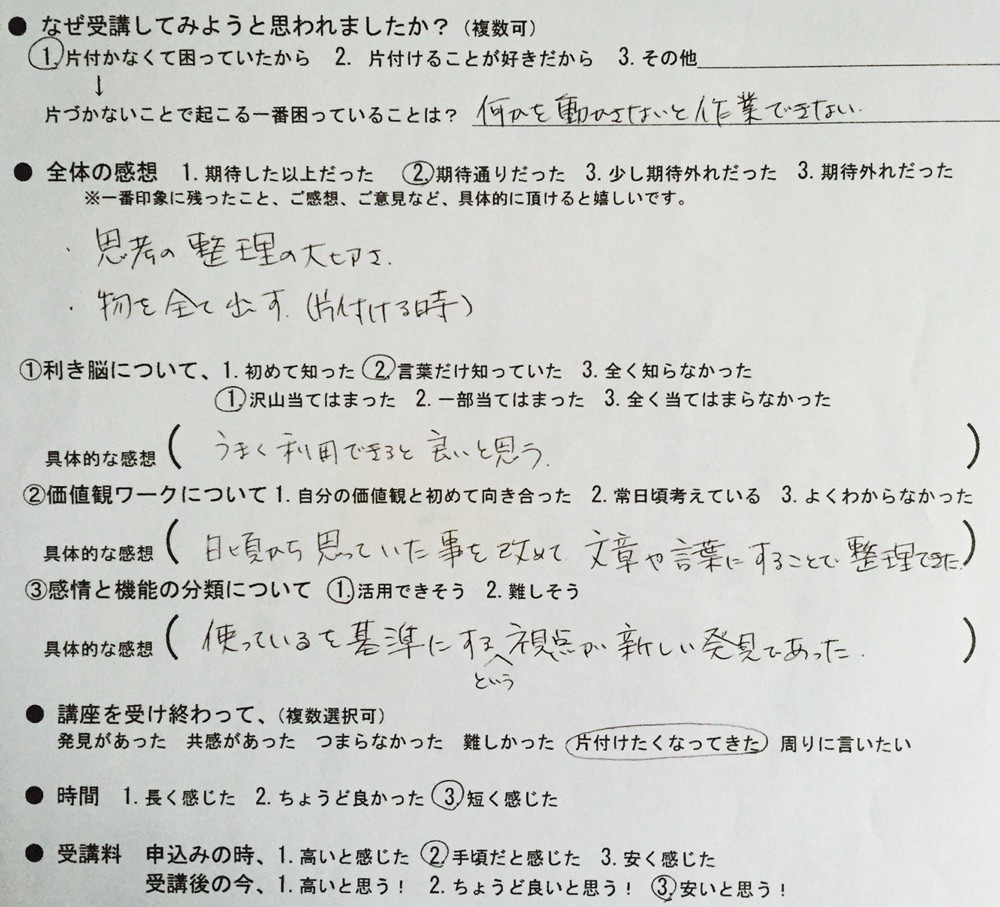 ● なぜ受講してみようと思われましたか？（複数可）
1. 片付かなくて困っていたから 2. 片付けることが好きだから 3. その他
↓
片づかないことで起こる一番困っていることは？ 何かを動かさないと作業できない.
● 全体の感想 1. 期待した以上だった 2. 期待通りだった 3. 少し期待外れだった 3. 期待外れだった
※一番印象に残ったこと、ご感想、ご意見など、具体的に頂けると嬉しいです。
・思考の整理の大切さ.
・物を全て出す. (片付ける時)
①利き脳について、1. 初めて知った 2. 言葉だけ知っていた 3. 全く知らなかった
1. 沢山当てはまった 2. 一部当てはまった 3. 全く当てはまらなかった
具体的な感想 ( うまく利用できると良いと思う. )
②価値観ワークについて 1. 自分の価値観と初めて向き合った 2. 常日頃考えている 3. よくわからなかった
具体的な感想 ( 日頃から思っていた事を改めて文章や言葉にすることで整理できた. )
③感情と機能の分類について 1. 活用できそう 2. 難しそう
具体的な感想 ( 使っているを基準にするという視点が新しい発見であった. )
● 講座を受け終わって、（複数選択可）
発見があった 共感があった つまらなかった 難しかった 片付けたくなってきた 周りに言いたい
● 時間 1. 長く感じた 2. ちょうど良かった 3. 短く感じた
● 受講料 申込みの時、1. 高いと感じた 2. 手頃だと感じた 3. 安く感じた
受講後の今、1. 高いと思う！ 2. ちょうど良いと思う！ 3. 安いと思う！